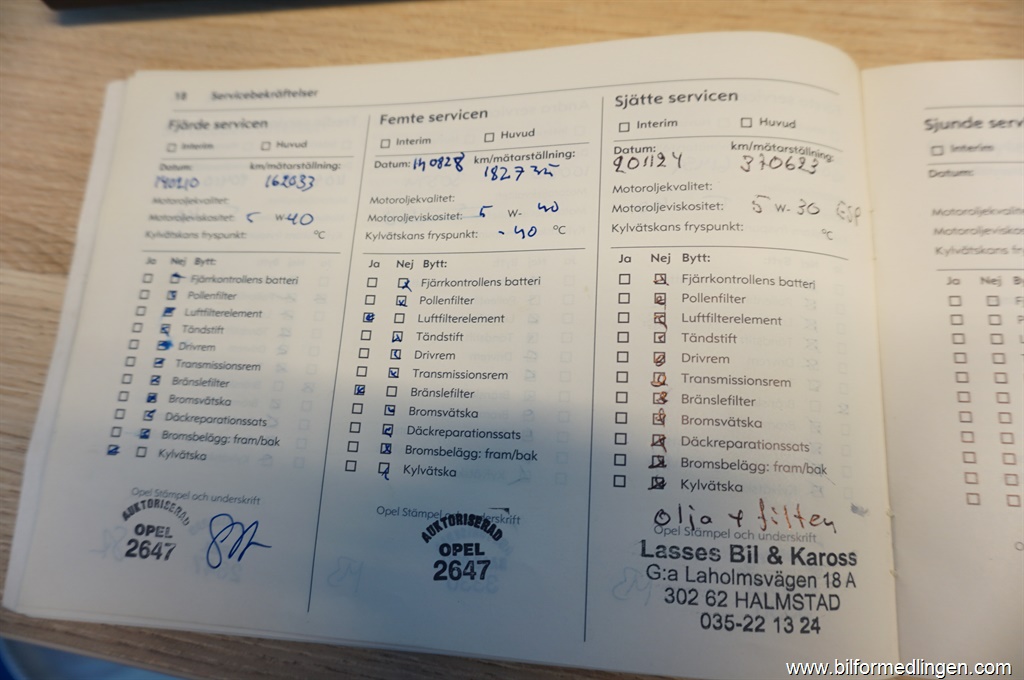 18 Servicebekräftelser
Fjärde servicen
Interim Huvud
Datum: km/mätarställning:
140210 162033
Motoroljekvalitet:
Motoroljeviskositet: 5 W-40
Kylvätskans fryspunkt: °C
Ja Nej Bytt:
Fjärrkontrollens batteri
Pollenfilter
Luftfilterelement
Tändstift
Drivrem
Transmissionsrem
Bränslefilter
Bromsvätska
Däckreparationssats
Bromsbelägg: fram/bak
Kylvätska
Opel Stämpel och underskrift
AUKTORISERAD
OPEL
2647
Femte servicen
Interim Huvud
Datum: 140828 km/mätarställning:
Motoroljekvalitet:
Motoroljeviskositet: 5 W- 40
Kylvätskans fryspunkt: -40 °C
Ja Nej Bytt:
Fjärrkontrollens batteri
Pollenfilter
Luftfilterelement
Tändstift
Drivrem
Transmissionsrem
Bränslefilter
Bromsvätska
Däckreparationssats
Bromsbelägg: fram/bak
Kylvätska
Opel Stämpel och underskrift
AUKTORISERAD
OPEL
2647
Sjätte servicen
Interim Huvud
Datum: km/mätarställning:
201124 370623
Motoroljekvalitet:
Motoroljeviskositet: 5 W-30
Kylvätskans fryspunkt: °C
Ja Nej Bytt:
Fjärrkontrollens batteri
Pollenfilter
Luftfilterelement
Tändstift
Drivrem
Transmissionsrem
Bränslefilter
Bromsvätska
Däckreparationssats
Bromsbelägg: fram/bak
Kylvätska
olja + filter
Opel Stämpel och underskrift
Lasses Bil & Kaross
G:a Laholmsvägen 18 A
302 62 HALMSTAD
035-22 13 24
Sjunde
Interim
Datum:
Ja Nej
www.bilformedlingen.com